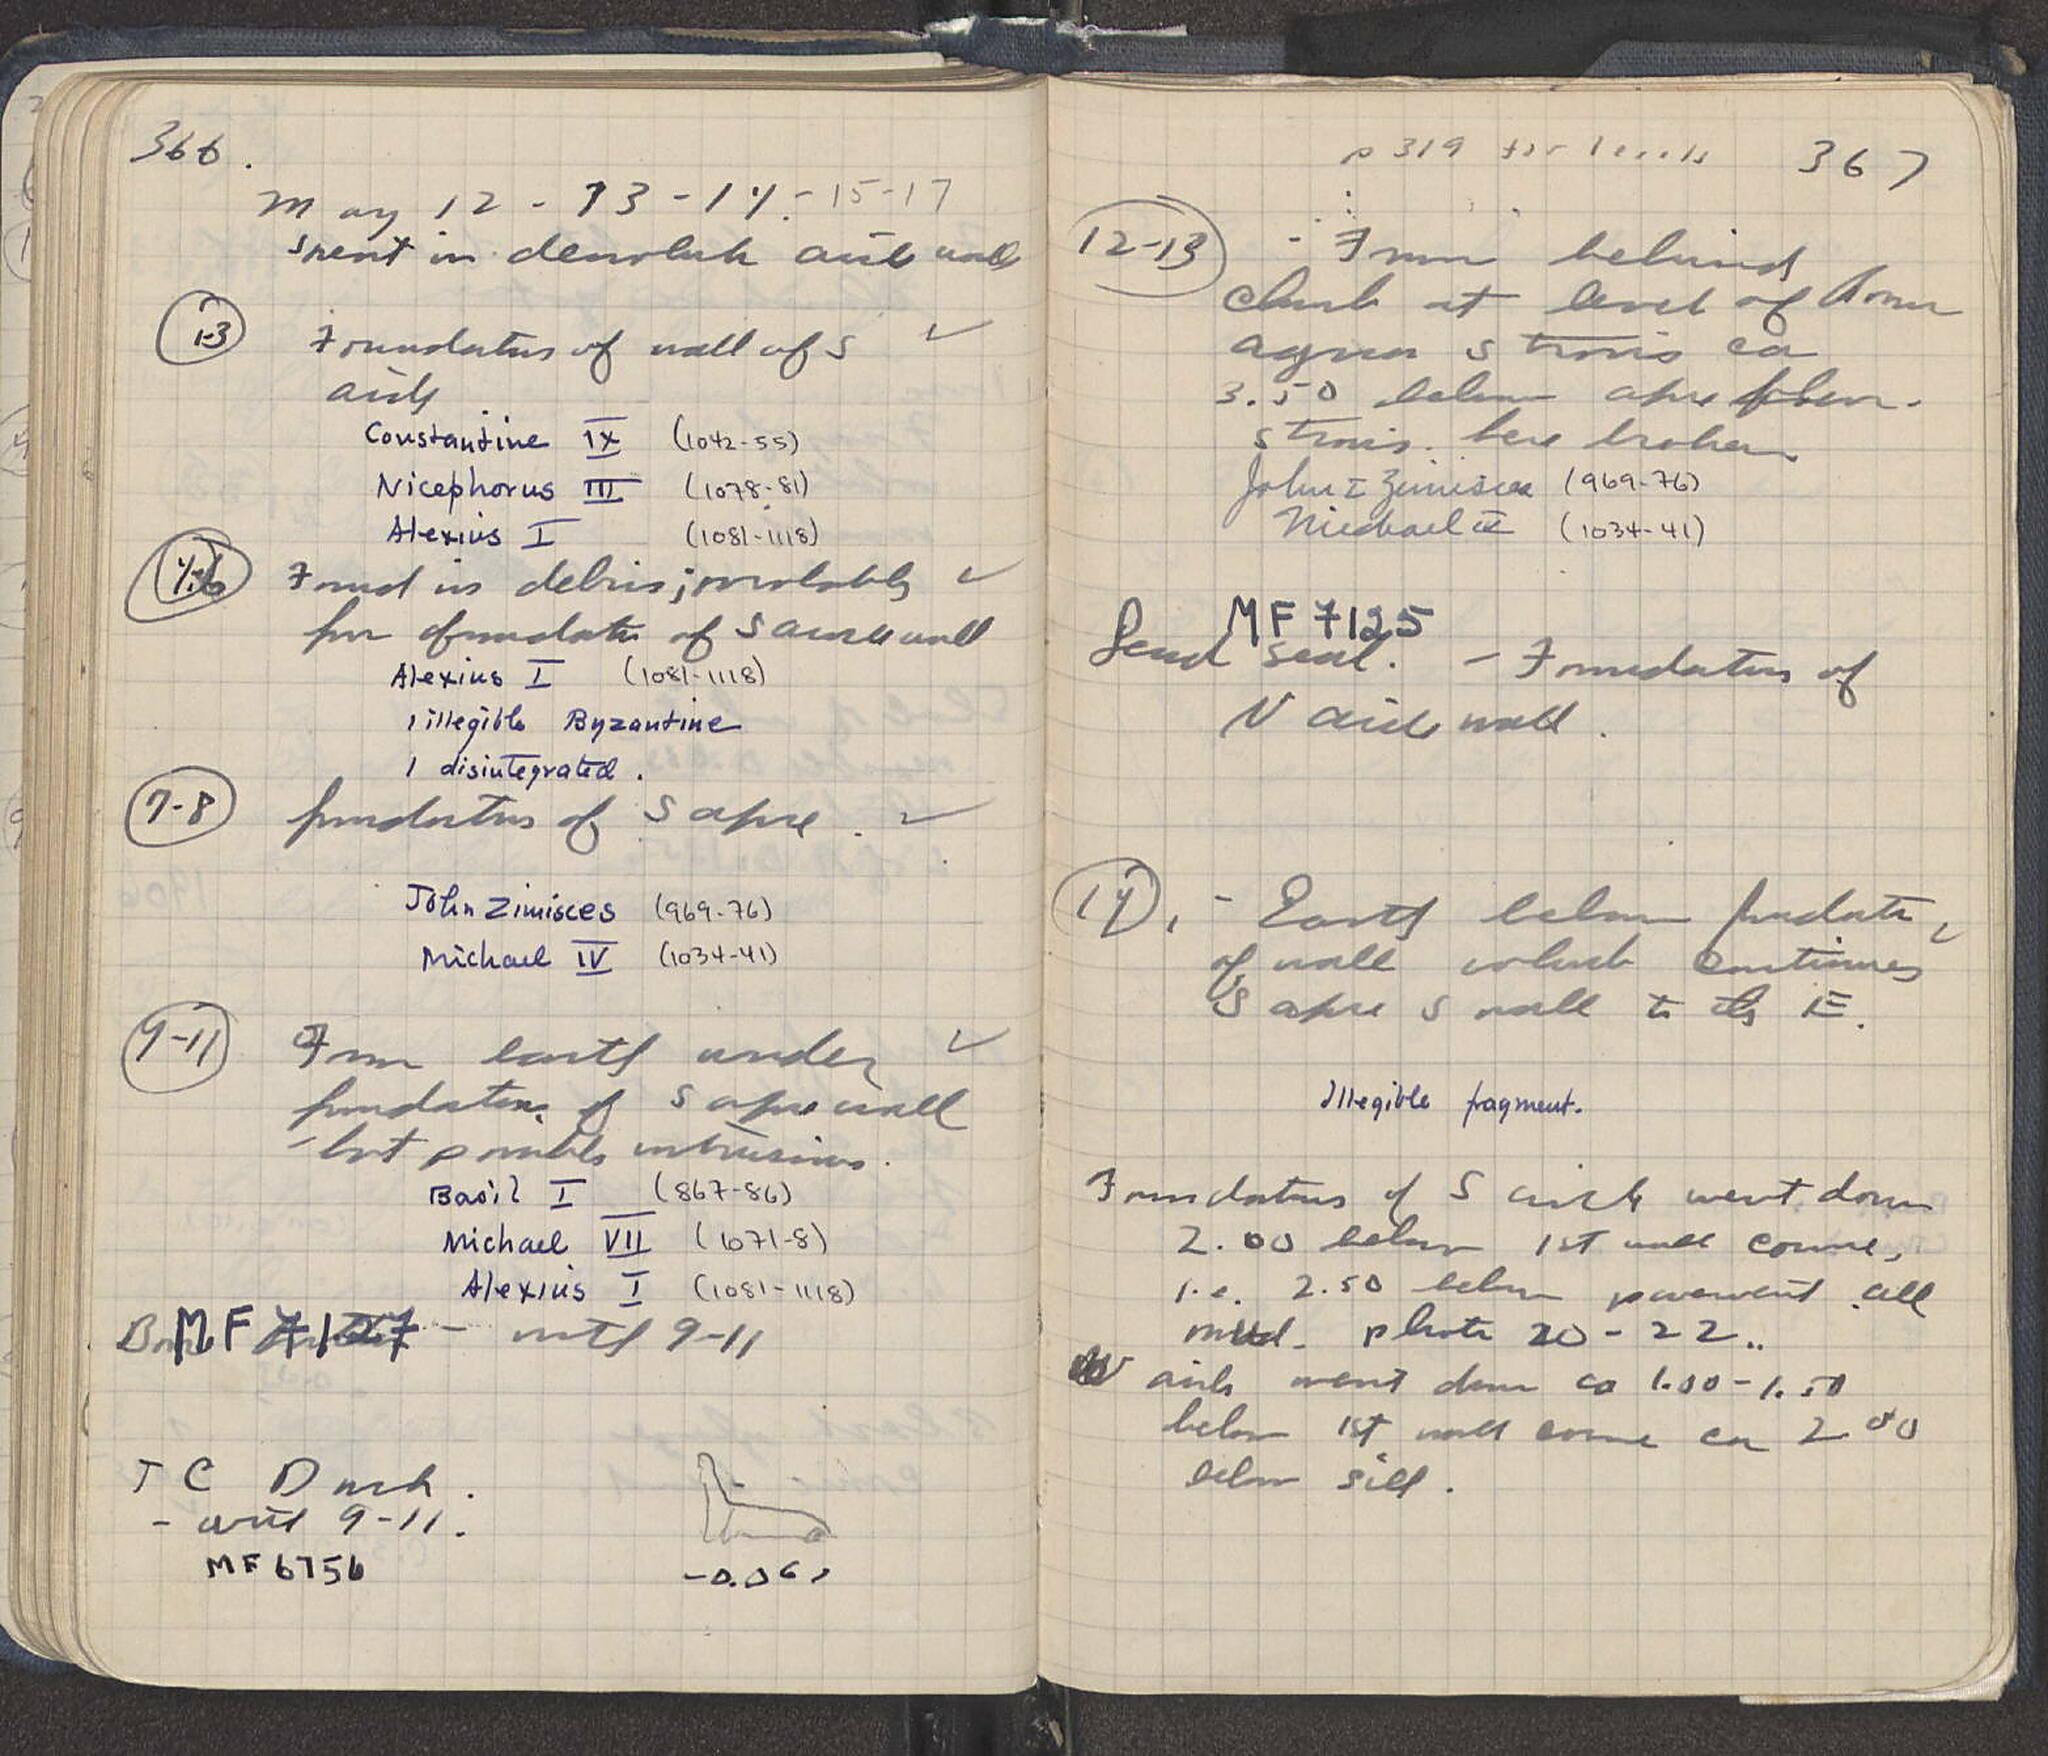 366.
May 12 - 13 - 14 - 15-17
spent in demolish aisle walls
1-3 Foundations of wall of S
aisle
Constantine IX (1042-55)
Nicephorus III (1078-81)
Alexius I (1081-1118)
4-6 Found in debris; probably
of S wall
Alexius I (1081-1118)
1 illegible Byzantine
1 disintegrated.
7-8 foundations of S apse.
John Zimisces (969-76)
Michael IV (1034-41)
9-11 From earth under
foundations of S apse wall
- but possibly intrusions.
Basil I (867-86)
Michael VII (1071-8)
Alexius I (1081-1118)
MF 7127 - with 9-11
T C Duck.
- with 9-11.
MF 6756
-0.06
p 319 for levels 367
12-13 - From behind
at level of
ca
3.50 below apse
here broken
John I Zimisces (969-76)
Michael IV (1034-41)
MF 7125
Lead seal. - Foundations of
N aisle wall.
14. - Earth below foundation
of wall which continues
S apse S wall to the E.
Illegible fragment.
Foundations of S aisle went down
2.00 below 1st wall course,
i.e. 2.50 below pavement all
mud. photo 20-22..
N aisle went down ca 1.00-1.50
below 1st wall course ca 2.00
below sill.